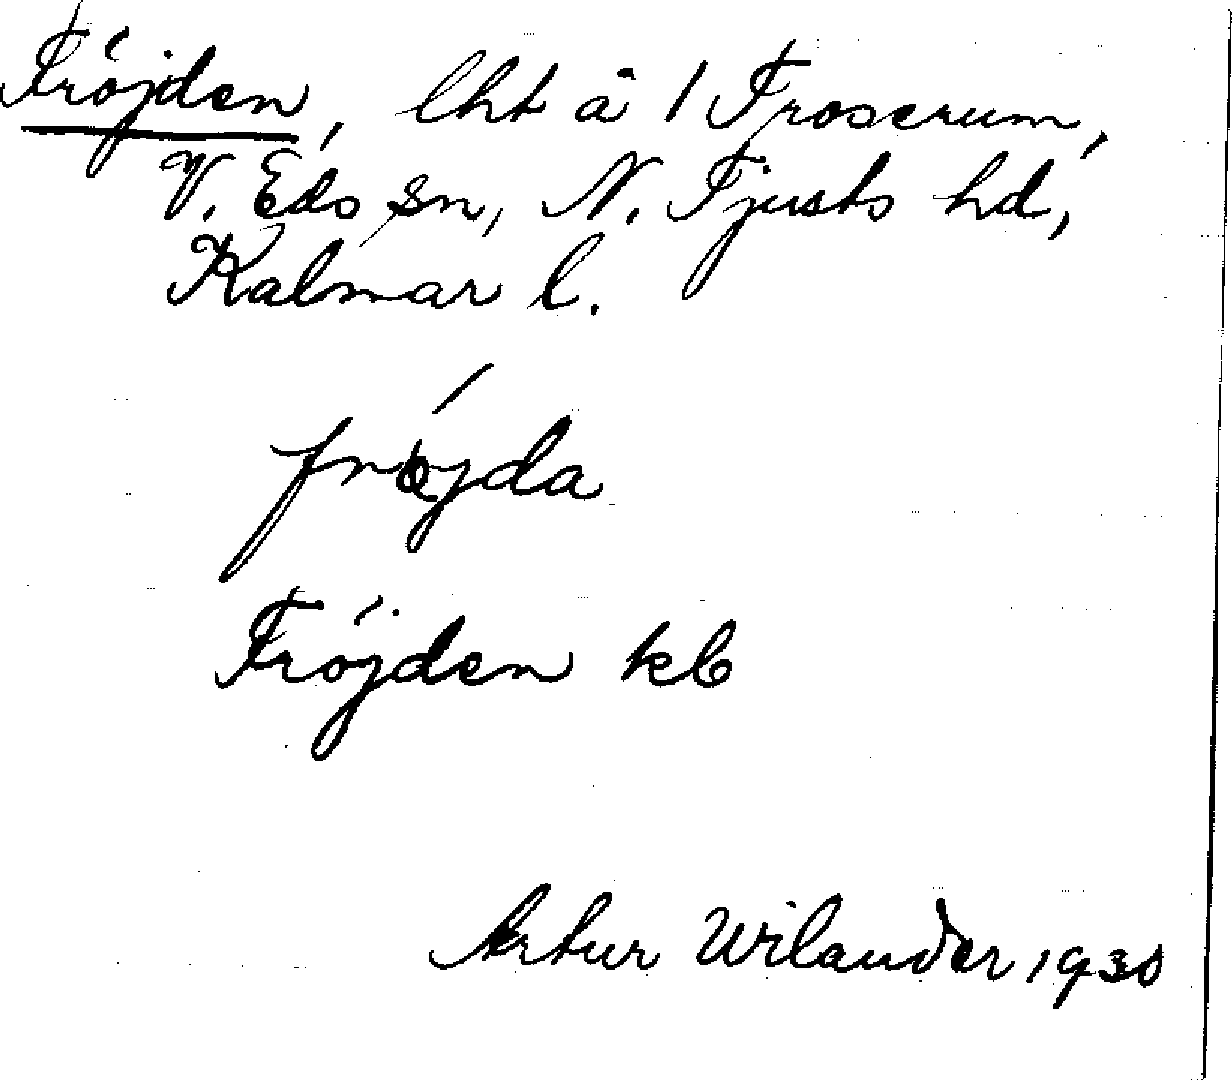 Fröjden, lht å 1 Froserum,
V. Eds sn, N. Tjusts hd,
Kalmar l.
fröjda
Fröjden kb
Artur Wilander 1930